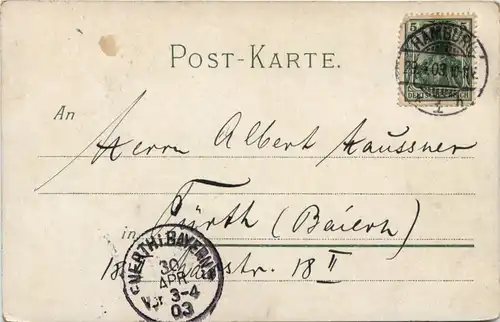 5 5
HAMBURG
4.03
DEUTSCHES REICH
1
POST-KARTE.
An
Herrn Albert Haussner
in Fürth (Baiern)
18 str. 18 II
FUERTH I. BAYERN
30
APR
Vor 3-4
03